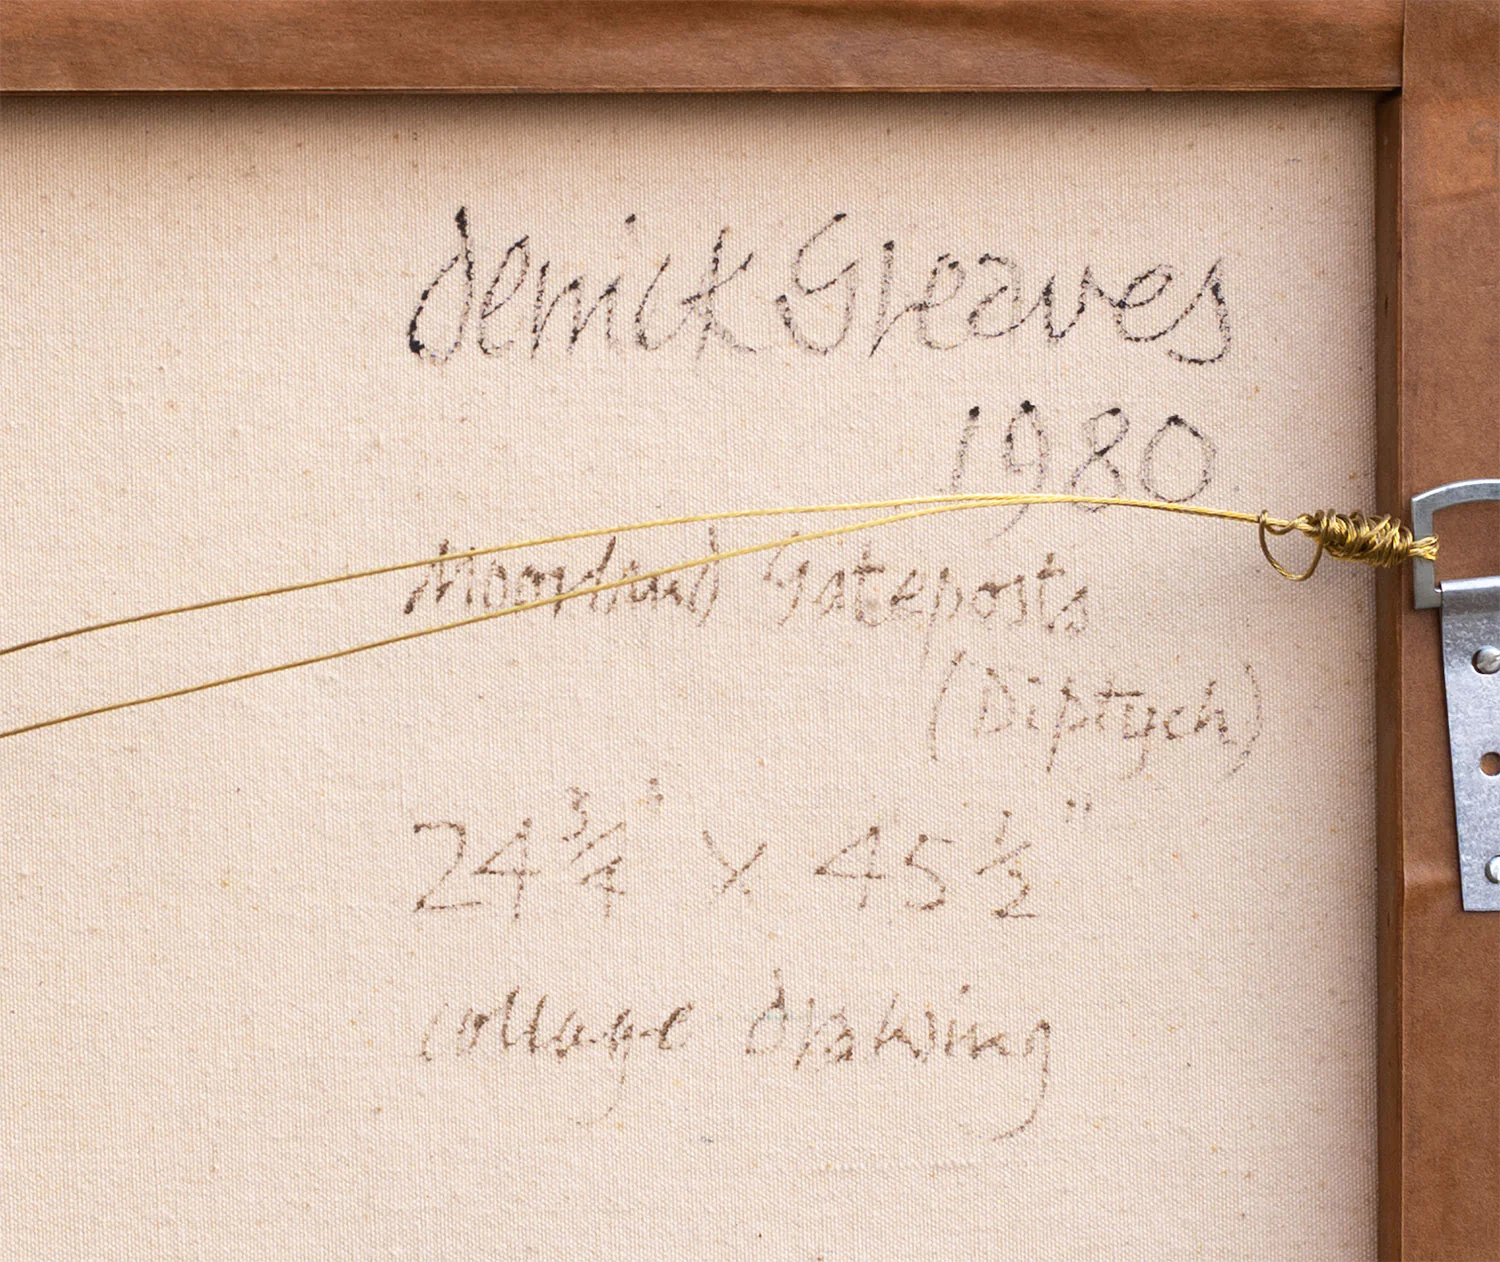 Derrick Greaves
1980
Moorland Gateposts
(Diptych)
24 3/4" x 45 1/2"
collage drawing